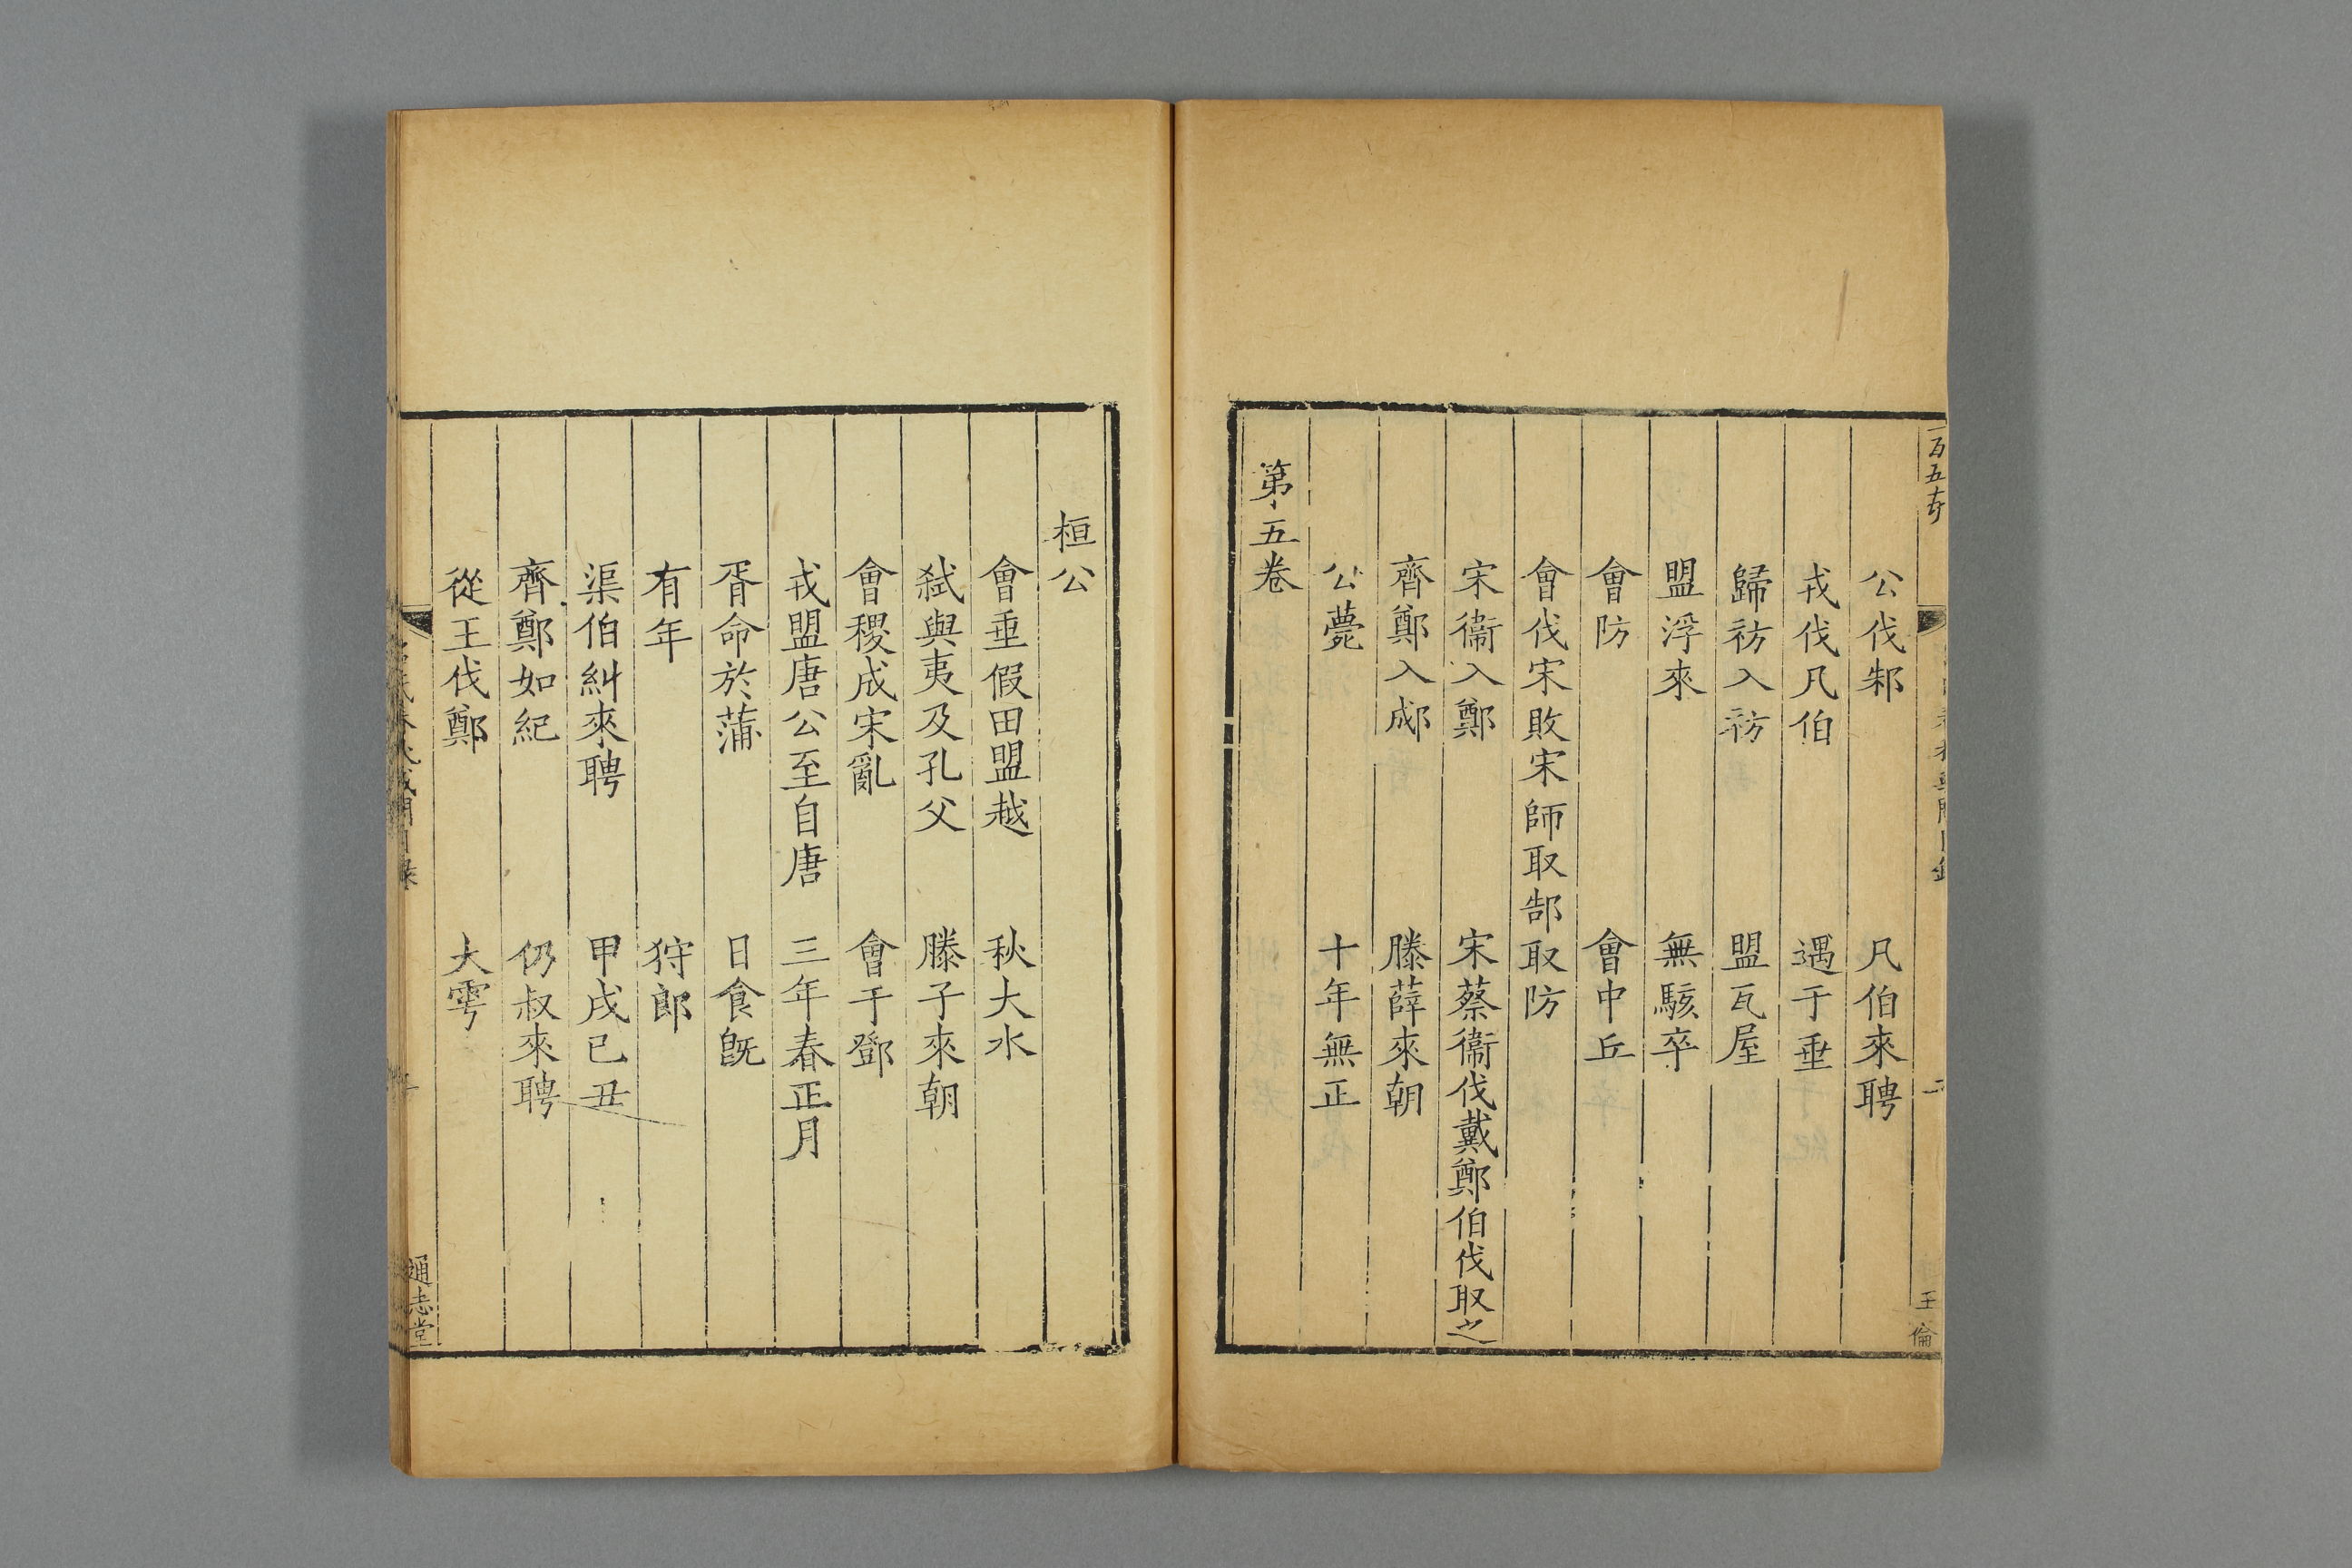 公伐邾　凡伯來聘
戎伐凡伯　遇于垂
歸祊入祊　盟瓦屋
盟浮來　無駭卒
會防　會中丘
會伐宋敗宋師取郜取防
宋衞入鄭　宋蔡衞伐戴鄭伯伐取之
齊鄭入郕　滕薛來朝
公薨　十年無正
第五卷
桓公
會垂假田盟越　秋大水
弑與夷及孔父　滕子來朝
會稷成宋亂　會于鄧
戎盟唐公至自唐　三年春正月
胥命於蒲　日食旣
有年　狩郎
渠伯糾來聘　甲戌己丑
齊鄭如紀　仍叔來聘
從王伐鄭　大雩
通志堂
王倫